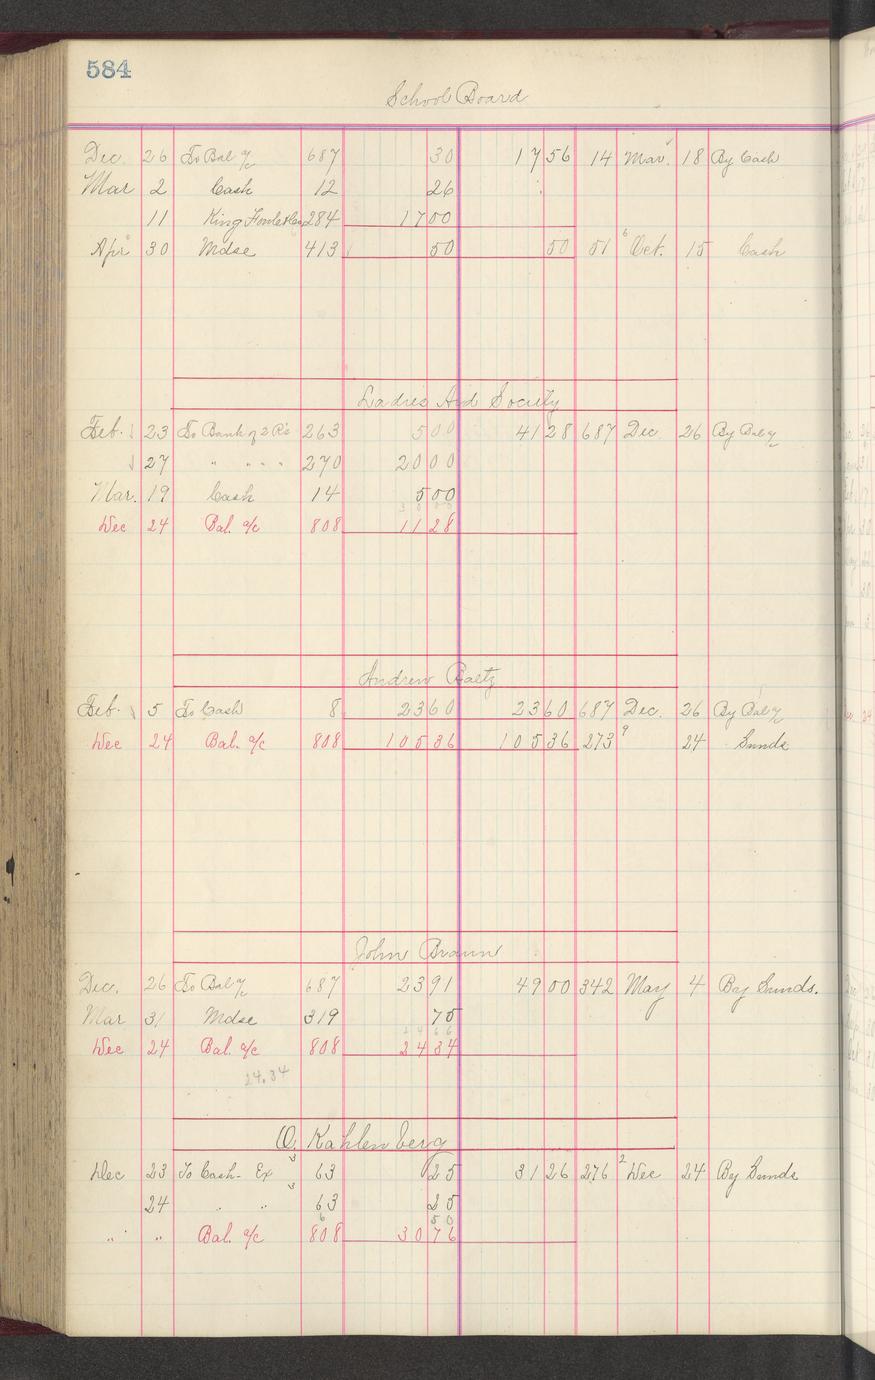 584
School Board
Dec. 26 To Bal a/c 687 30 17 56 14 Mar. 18 By Cash
Mar 2 Cash 12 26
11 King 284 17 00
Apr 30 Mdse 413 50 50 51 6 Oct. 15 Cash
Ladies Aid Society
Feb. 23 To Bank of 2 R's 263 5 00 41 28 687 Dec 26 By Bal a/c
27 " " " " 270 20 00
Mar. 19 Cash 14 5 00
30 00
Dec 24 Bal. a/c 808 11 28
Andrew Baetz
Feb. 5 To Cash 8 23 60 23 60 687 Dec. 26 By Bal a/c
Dec 24 Bal. a/c 808 105 36 105 36 273 9 24 Sunds
John Braun
Dec. 26 To Bal a/c 687 23 91 49 00 342 May 4 By Sunds.
Mar 31 Mdse 319 75
24 66
Dec 24 Bal. a/c 808 24 34
24.34
O. Kahlenberg
Dec 23 To Cash- Ex 3 63 25 31 26 276 2 Dec 24 By Sunds
24 " " 3 63 25
6 50
" " Bal. a/c 808 30 76